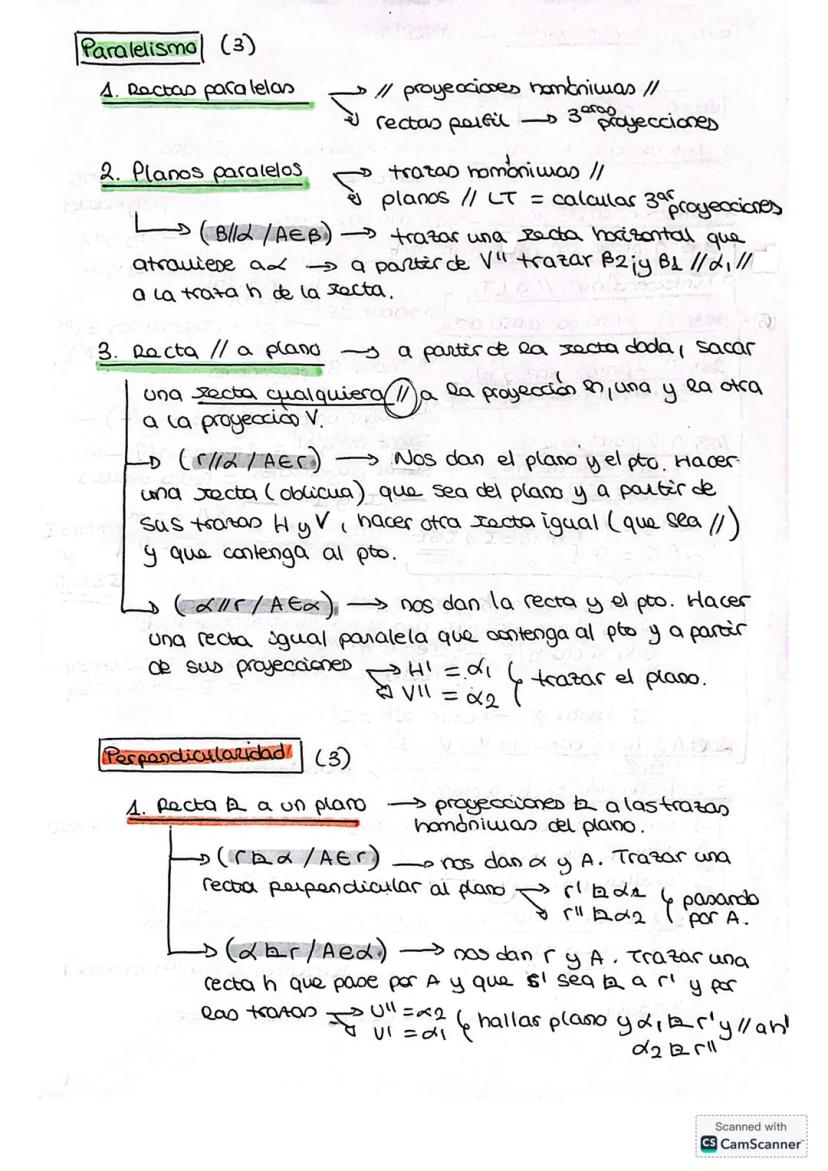 Paralelismo (3)
1. Rectas paralelas → // proyecciones homónimas //
↘ rectas perfil → 3ᵃʳᵃˢ proyecciones
2. Planos paralelos → trazas homónimas //
↘ planos // LT = calcular 3ᵃˢ proyecciones
↳ (β//α / A∈β) → trazar una recta horizontal que
atraviese a α → a partir de V'' trazar β2 y β1 // α1 //
a la traza h de la recta.
3. Recta // a plano → a partir de la recta dada, sacar
una recta cualquiera // a la proyección h, una y la otra
a la proyección V.
→ (r//α / A∈r) → Nos dan el plano y el pto. Hacer
una recta (oblicua) que sea del plano y a partir de
sus trazas H y V, hacer otra recta igual (que sea //)
y que contenga al pto.
→ (α//r / A∈α) → nos dan la recta y el pto. Hacer
una recta igual paralela que contenga al pto y a partir
de sus proyecciones → H' = α1
↘ V'' = α2 } trazar el plano.
Perpendicularidad (3)
1. Recta ⊥ a un plano → proyecciones ⊥ a las trazas
homónimas del plano.
→ (r ⊥ α / A∈r) → nos dan α y A. Trazar una
recta perpendicular al plano → r' ⊥ α1
↘ r'' ⊥ α2 } pasando
por A.
→ (α ⊥ r / A∈α) → nos dan r y A. Trazar una
recta h que pase por A y que s' sea ⊥ a r' y por
las trazas → V'' = α2
↘ V' = α1 } hallar plano y α1 ⊥ r' y // a h'
α2 ⊥ r''
Scanned with
CS CamScanner